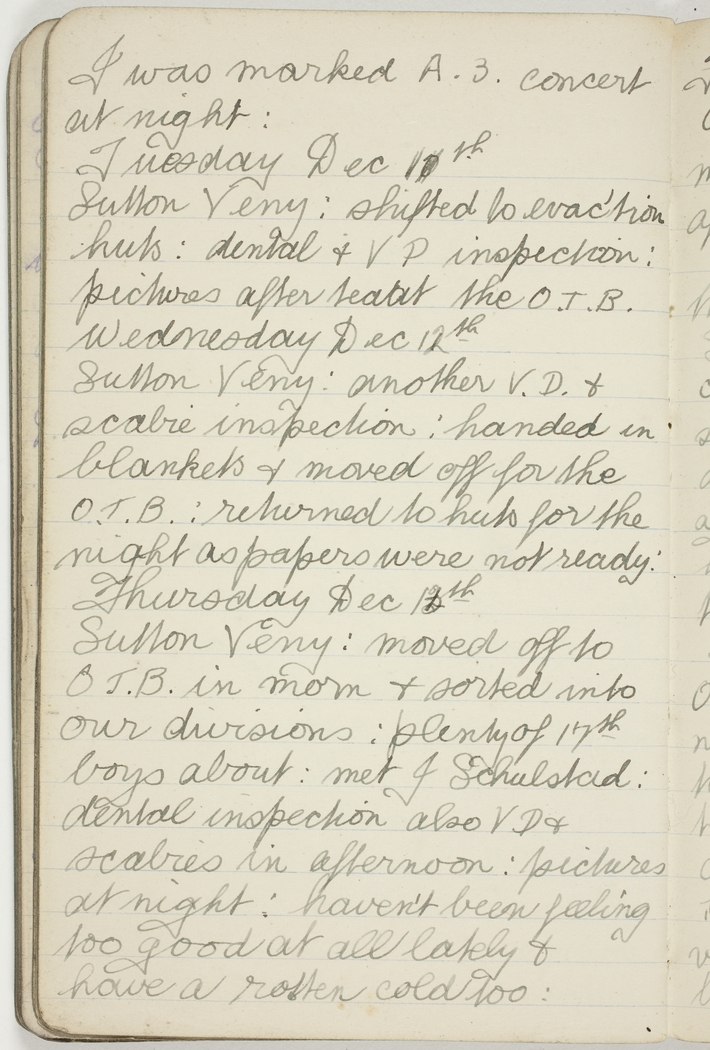 I was marked A.3. concert
at night:
Tuesday Dec 11th
Sutton Veny: shifted to evac'tion
huts: dental & V D inspection:
pictures after tea at the O.T.B.
Wednesday Dec 12th
Sutton Veny: another V.D. &
scabie inspection: handed in
blankets & moved off for the
O.T.B.: returned to huts for the
night as papers were not ready:
Thursday Dec 13th
Sutton Veny: moved off to
O T.B. in morn & sorted into
our divisions: plenty of 17th
boys about: met J Schulstad:
dental inspection also V D &
scabies in afternoon: pictures
at night: haven't been feeling
too good at all lately &
have a rotten cold too: